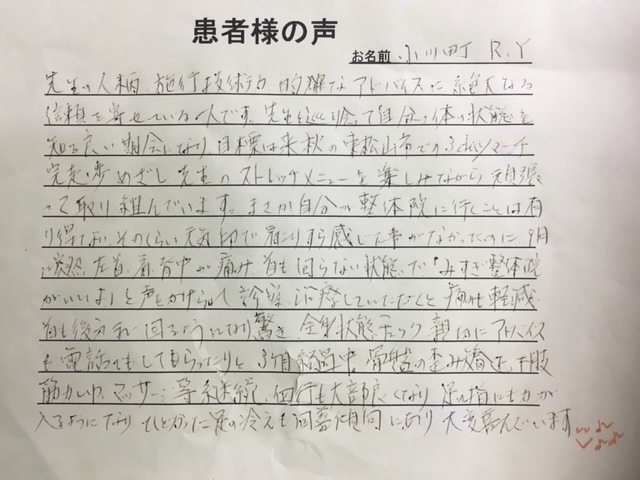 患者様の声
お名前 小川町 R.Y
先生の人柄、施術技術力、的確なアドバイスに絶大なる
信頼を寄せている一人です。先生に巡り会って自分の体の状態を
知る良い機会になり、目標は来秋の東松山市での3dayマーチ
完走、歩めざし先生のストレッチメニューを楽しみながら頑張
って取り組んでいます。まさか自分が整体院に行くことは有
り得ない、そのくらい元気印で肩こりすら感じた事がなかったのに9月
に突然、左首、肩、背中が痛み首も回らない状態で「みすぎ整体院
がいいよ」と声をかけられて診察、治療していただくと痛みも軽減
首も後方まで回るようになり驚き、全身状態チェック、親切にアドバイス
も電話でもしてもらったりと3ヶ月経過中。骨盤の歪み矯正、下肢
筋力UP、マッサージ等を継続、歩行も大部良くなり足の指にも力が
入るようになりひどかった足の冷えも回復傾向にあり大変喜んでいます